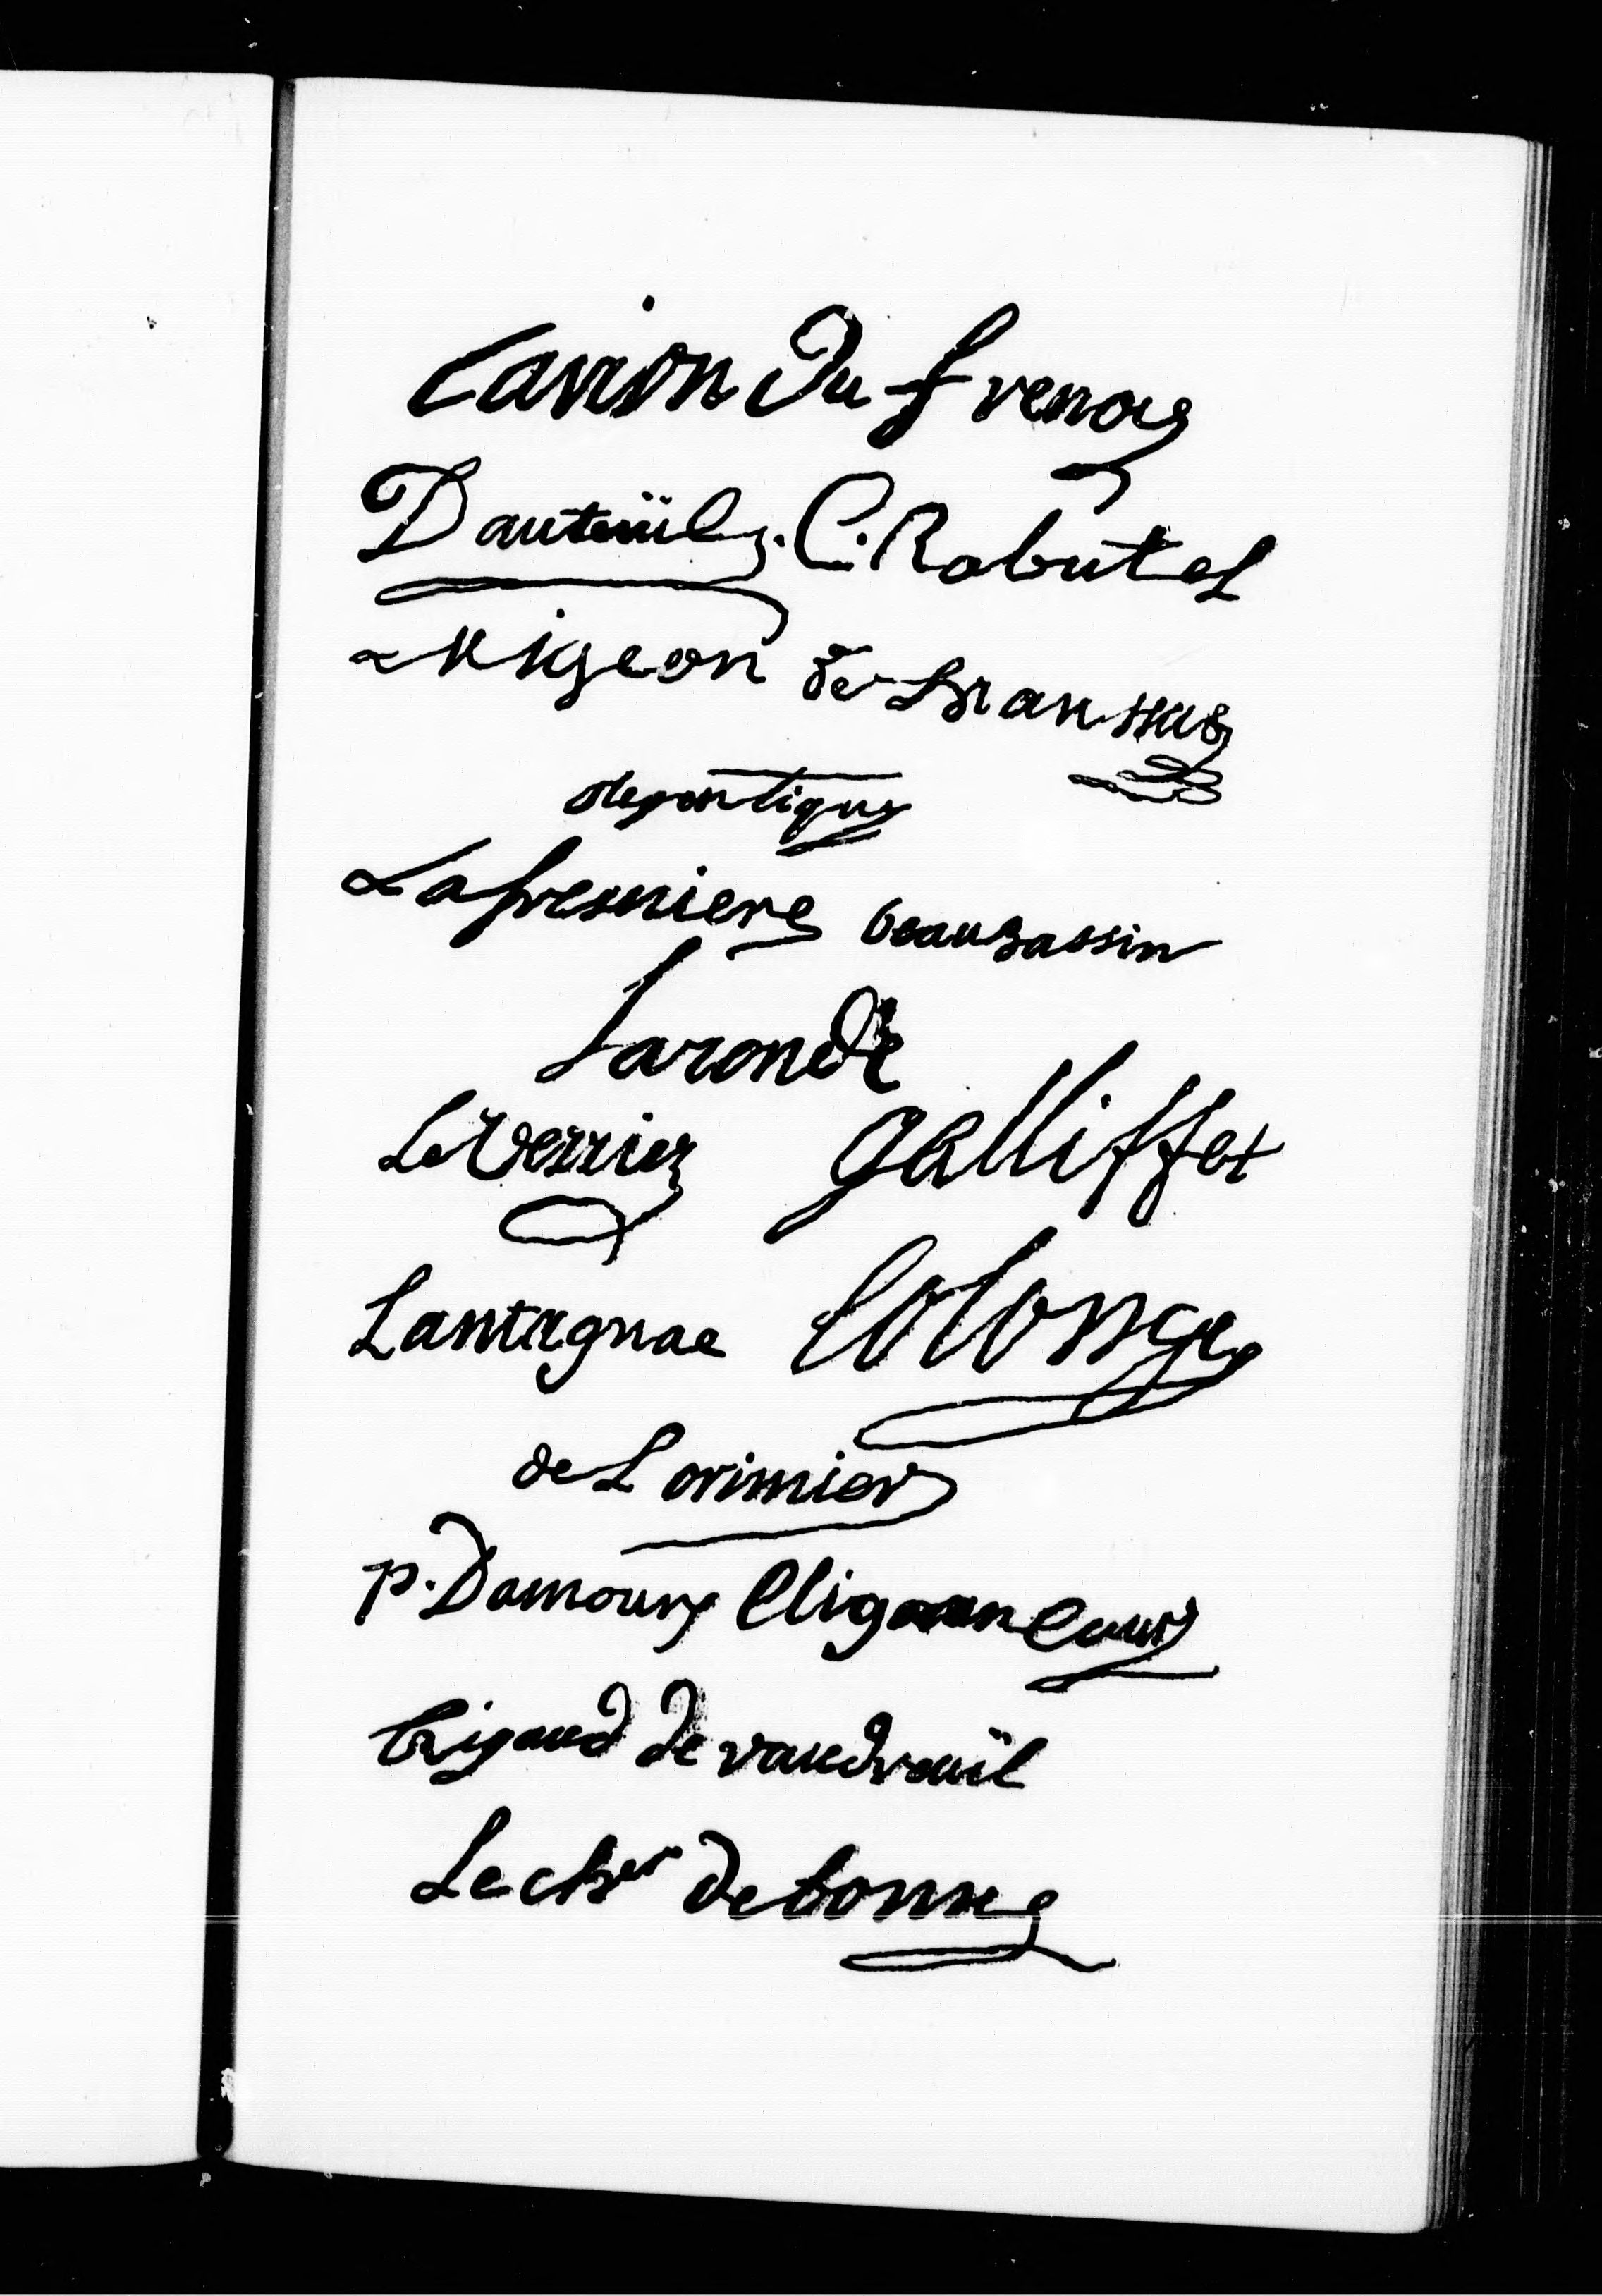 Carion Du fresnoy
Dauteüil. C. Robutel
Migeon de branssat
deyontigny
Lafresniere beaubassin
Laronde
Le Verrier galliffet
Lantagnac Colonge
de Lorimier
p. Damours Clignancour
Rigaud de vaudreüil
Le cher de bonne